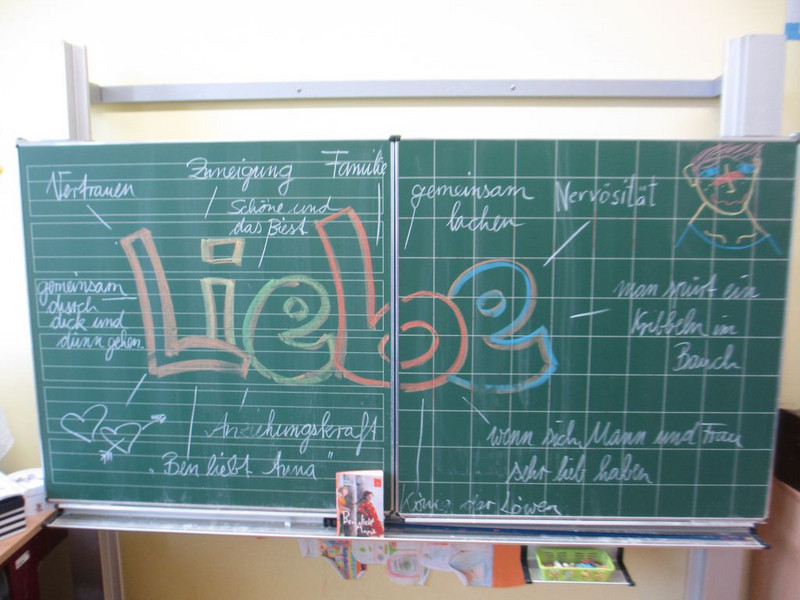 Vertrauen
Zuneigung
Familie
Schöne und
das Biest
gemeinsam
durch
dick und
dünn gehen.
Liebe
Anziehungskraft
"Ben liebt Anna"
gemeinsam
lachen
Nervösität
man spürt ein
Kribbeln im
Bauch
wenn sich Mann und Frau
sehr lieb haben
König der Löwen
Ben liebt
Anna